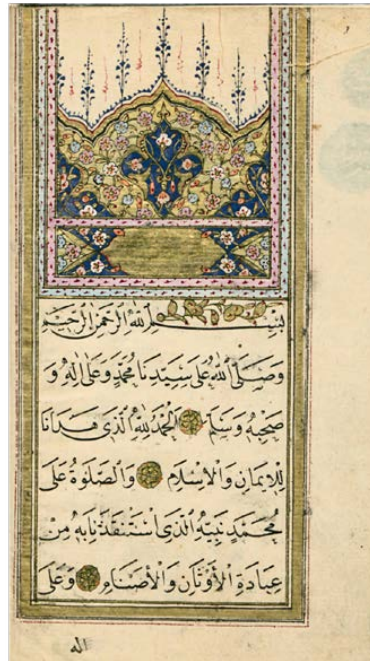 بِسْمِ اللّٰهِ الرَّحْمٰنِ الرَّحِيْمِ
وَصَلَّى اللّٰهُ عَلٰى سَيِّدِنَا مُحَمَّدٍ وَعَلٰى اٰلِهٖ وَ
صَحْبِهٖ وَسَلَّمَ اَلْحَمْدُ لِلّٰهِ الَّذٖى هَدَانَا
لِلْاِيمَانِ وَالْاِسْلَامِ وَالصَّلٰوةُ عَلٰى
مُحَمَّدٍ نَبِيِّهِ الَّذٖى اسْتَنْقَذَنَا بِهٖ مِنْ
عِبَادَةِ الْاَوْثَانِ وَالْاَصْنَامِ وَعَلٰى
اله